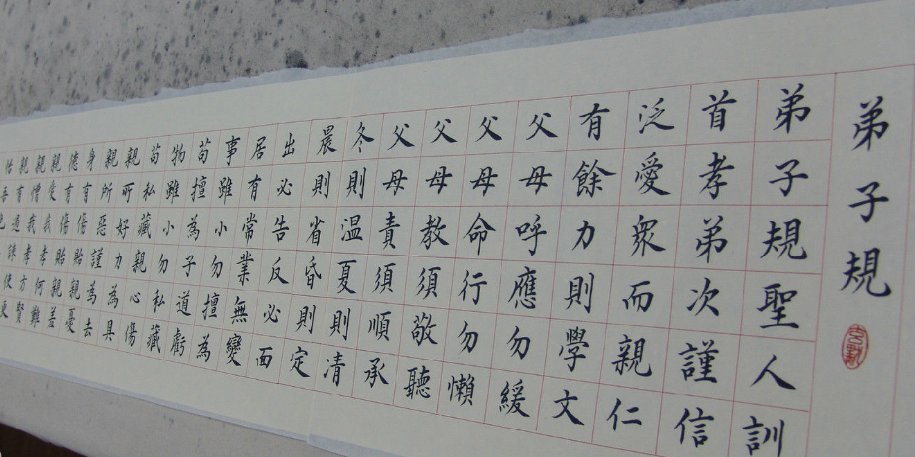 弟子規
弟子規聖人訓
首孝弟次謹信
泛愛眾而親仁
有餘力則學文
父母呼應勿緩
父母命行勿懶
父母教須敬聽
父母責須順承
冬則温夏則清
晨則省昏則定
出必告反必面
居有常業無變
事雖小勿擅為
苟擅為子道虧
物雖小勿私藏
苟私藏親心傷
親所好力為具
親所惡謹為去
身有傷貽親憂
德有傷貽親羞
親愛我孝何難
親憎我孝方賢
親有過諫使更
怡吾色